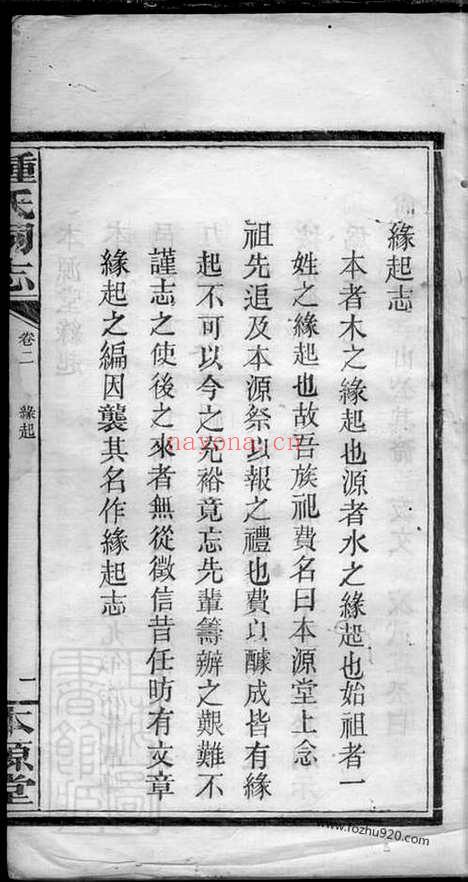 緣起志
本者木之緣起也源者水之緣起也始祖者一
姓之緣起也故吾族祀費名曰本源堂上念
祖先追及本源祭以報之禮也費以醵成皆有緣
起不可以今之充裕竟忘先輩籌辦之艱難不
謹志之使後之來者無從徵信昔任昉有文章
緣起之編因襲其名作緣起志
鍾氏祠志
卷二
緣起
一
本源堂
nayona.cn
www.fozhu920.com